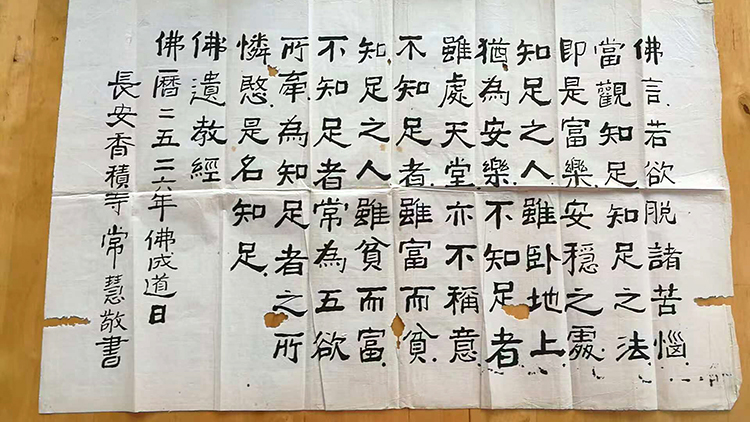 佛言若欲脫諸苦惱
當觀知足知足之法
即是富樂安穩之處
知足之人雖卧地上
猶為安樂不知足者
雖處天堂亦不稱意
不知足者雖富而貧
知足之人雖貧而富
不知足者常為五欲
所牽為知足者之所
憐愍是名知足
佛遺教經
佛曆二五二六年佛成道日
長安香積寺常慧敬書